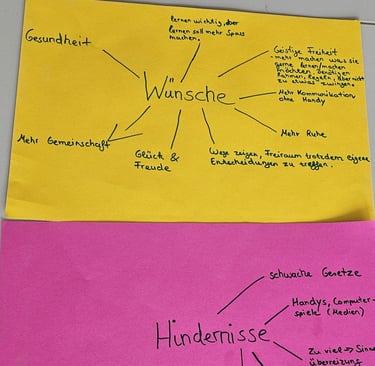 lernen wichtig, aber
lernen soll mehr Spass
machen.
Gesundheit
Geistige Freiheit
- mehr machen was sie
gerne lernen/machen
möchten, benötigen
Rahmen, Regeln, aber nicht
zu etwas zwingen.
Wünsche
Mehr Kommunikation
ohne Handy
Mehr Ruhe
Mehr Gemeinschaft
Glück &
Freude
Wege zeigen, Freiraum trotzdem eigene
Entscheidungen zu treffen.
schwache Gesetze
Handys, Computer-
spiele (Medien)
Hindernisse
Zu viel → Sinne
überreizung